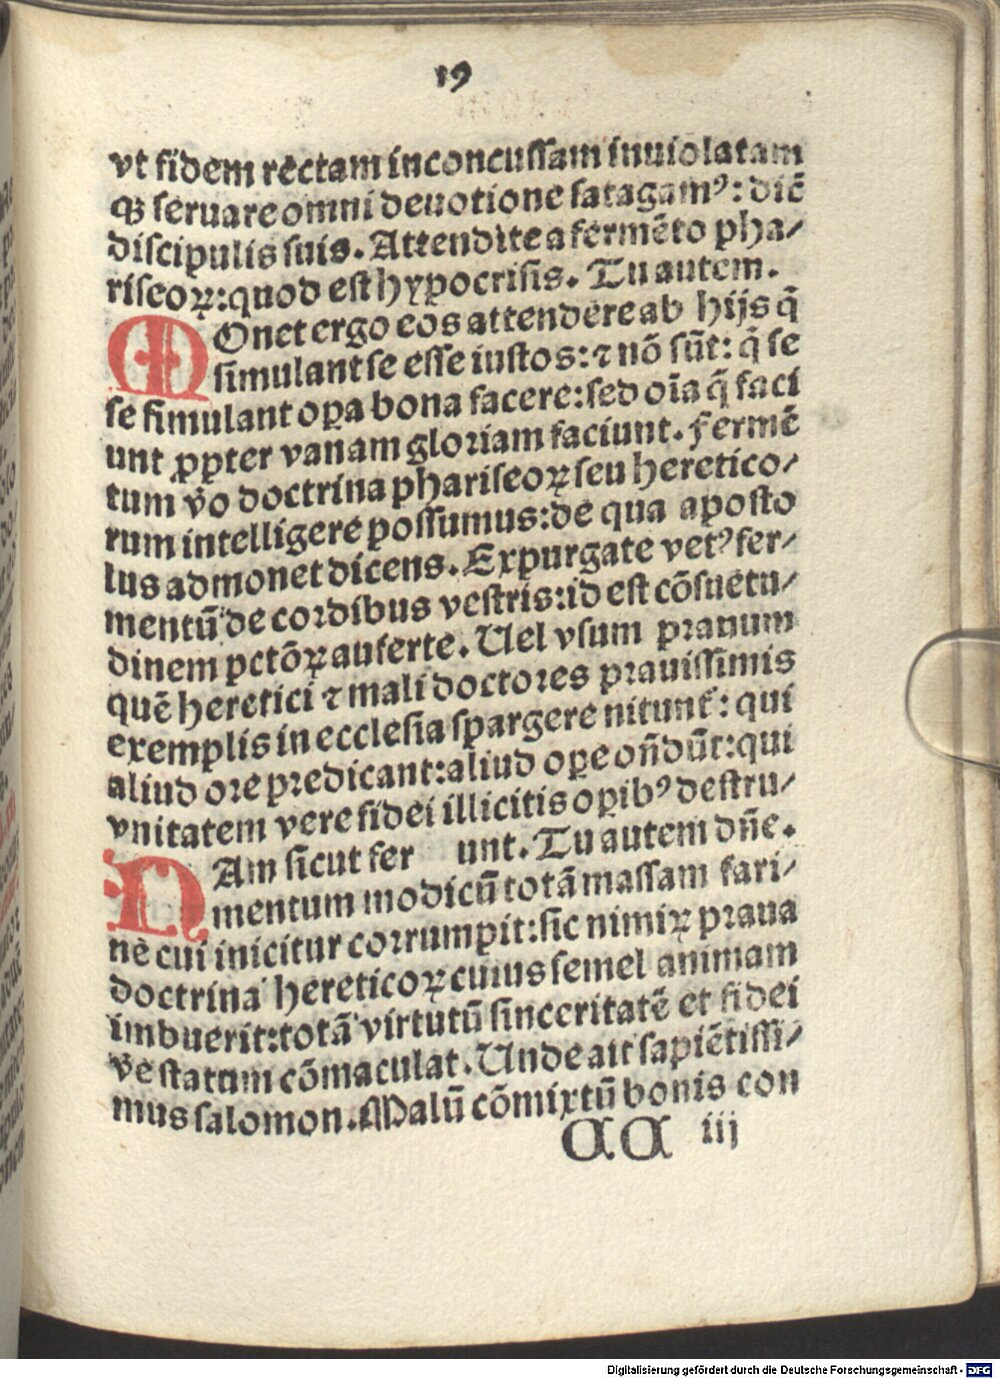 19
vt fidem rectam inconcussam inuiolatam
qꝫ seruare omni deuotione satagamꝰ: dicē
discipulis suis. Attendite a fermēto pha/
riseoꝝ: quod est hypocrisis. Tu autem.
MOnet ergo eos attendere ab hijs q̄
simulant se esse iustos: ⁊ nō sūt: q̄ se
se simulant oꝑa bona facere: sed oīa q̄ faci
unt ꝓpter vanam gloriam faciunt. fermē
tum v̄o doctrina phariseoꝝ seu heretico/
rum intelligere possumus: de qua aposto
lus admonet dicens. Expurgate vetꝰ fer/
mentū de cordibus vestris: id est cōsuetu/
dinem pctōꝝ auferte. Uel vsum prauum
quē heretici ⁊ mali doctores prauissimis
exemplis in ecclesia spargere nitunt᷑: qui
aliud ore predicant: aliud oꝑe on̄dūt: qui
vnitatem vere fidei illicitis oꝑibꝰ destru/
NAm sicut fer unt. Tu autem dn̄e.
mentum modicū totā massam fari/
ne cui inicitur corrumpit: sic nimiꝝ praua
doctrina hereticoꝝ cuius semel animam
imbuerit: totā virtutū sinceritatē et fidei
v̄e statum cōmaculat. Unde ait sapiētissi/
mus salomon. Malū cōmixtū bonis con
AA iij
Digitalisierung gefördert durch die Deutsche Forschungsgemeinschaft - DFG